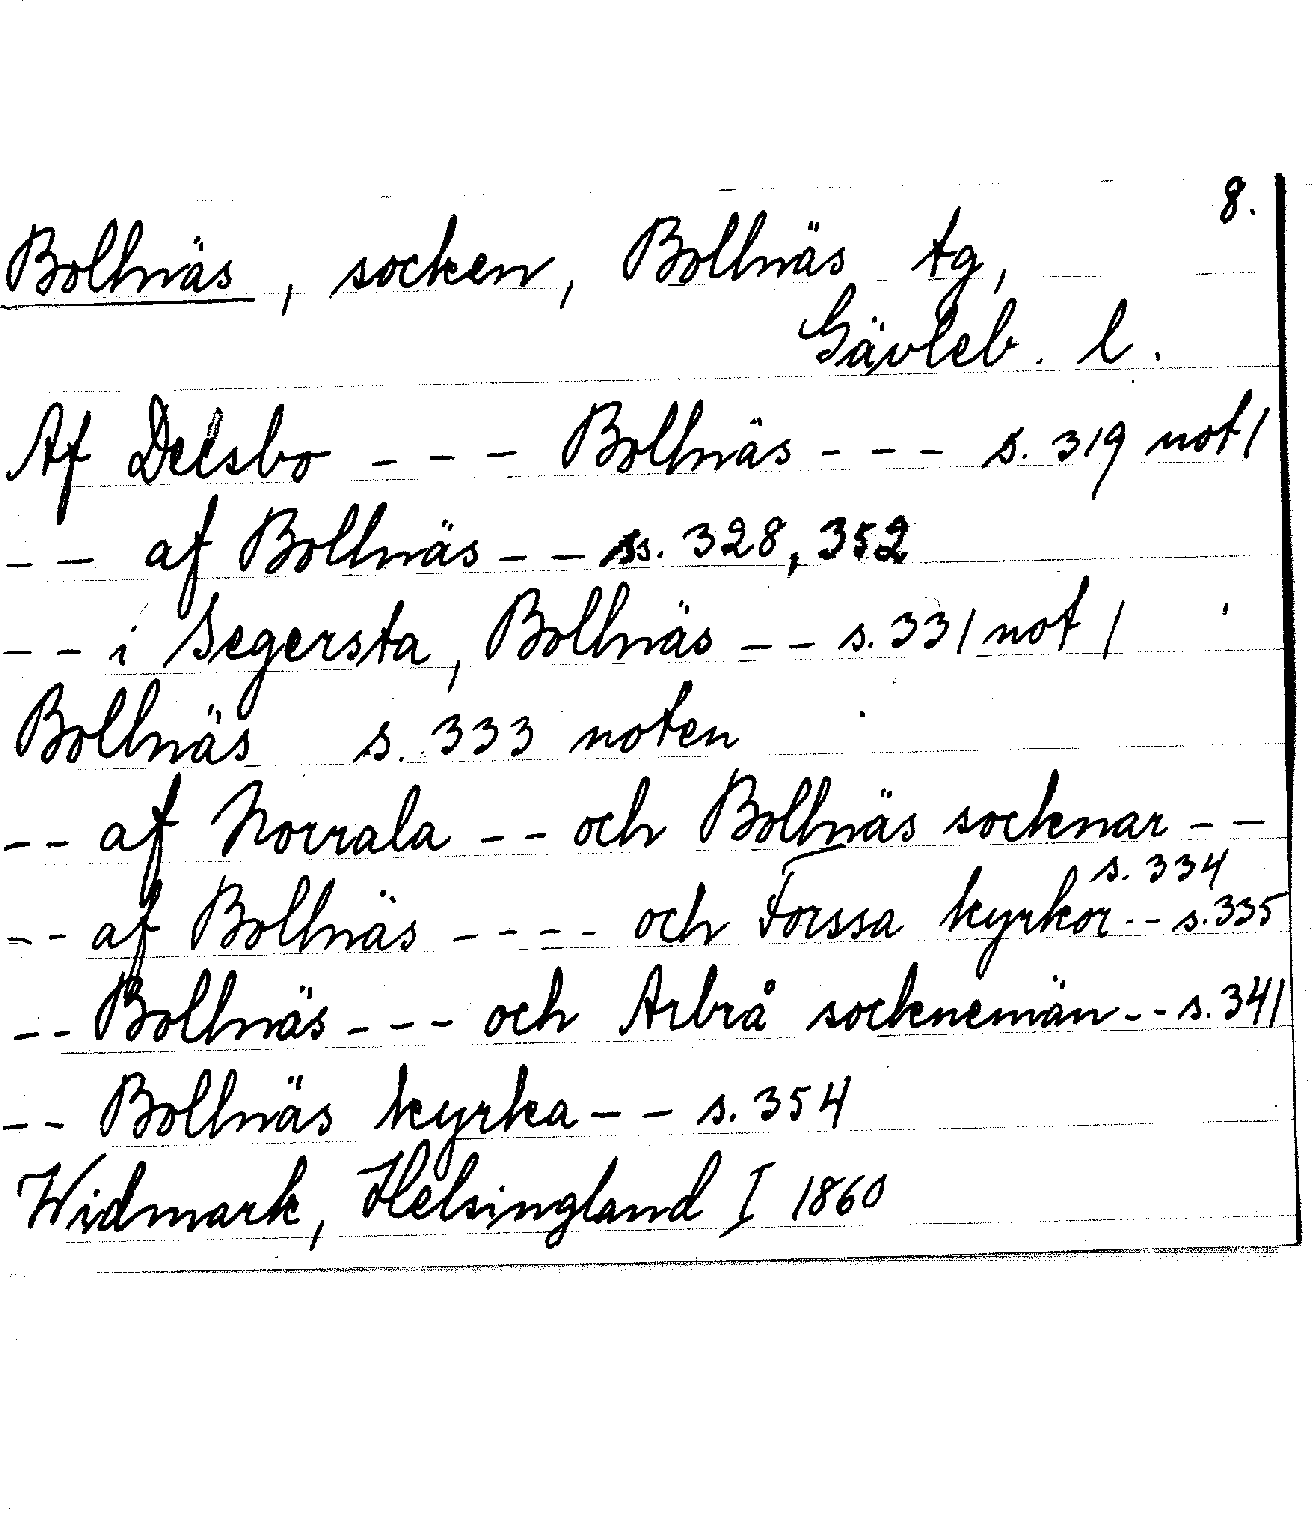 8.
Bollnäs, socken, Bollnäs tg,
Gävleb. l.
Af Delsbo - - - Bollnäs - - - s. 319 not 1
- - af Bollnäs - - ss. 328, 352
- - i Segersta, Bollnäs - - s. 331 not 1
Bollnäs s. 333 noten
- - af Norrala - - och Bollnäs socknar - -
s. 334
- - af Bollnäs - - - - och Forssa kyrkor - - s. 335
- - Bollnäs - - - och Arbrå socknemän - - s. 341
- - Bollnäs kyrka - - s. 354
Widmark, Helsingland I 1860